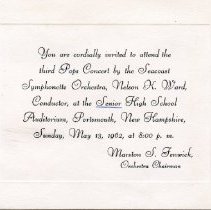 You are cordially invited to attend the
third Pops Concert by the Seacoast
Symphonette Orchestra, Nelson H. Ward,
Conductor, at the Senior High School
Auditorium, Portsmouth, New Hampshire,
Sunday, May 13, 1962, at 8:00 p. m.
Marston S. Fenwick,
Orchestra Chairman